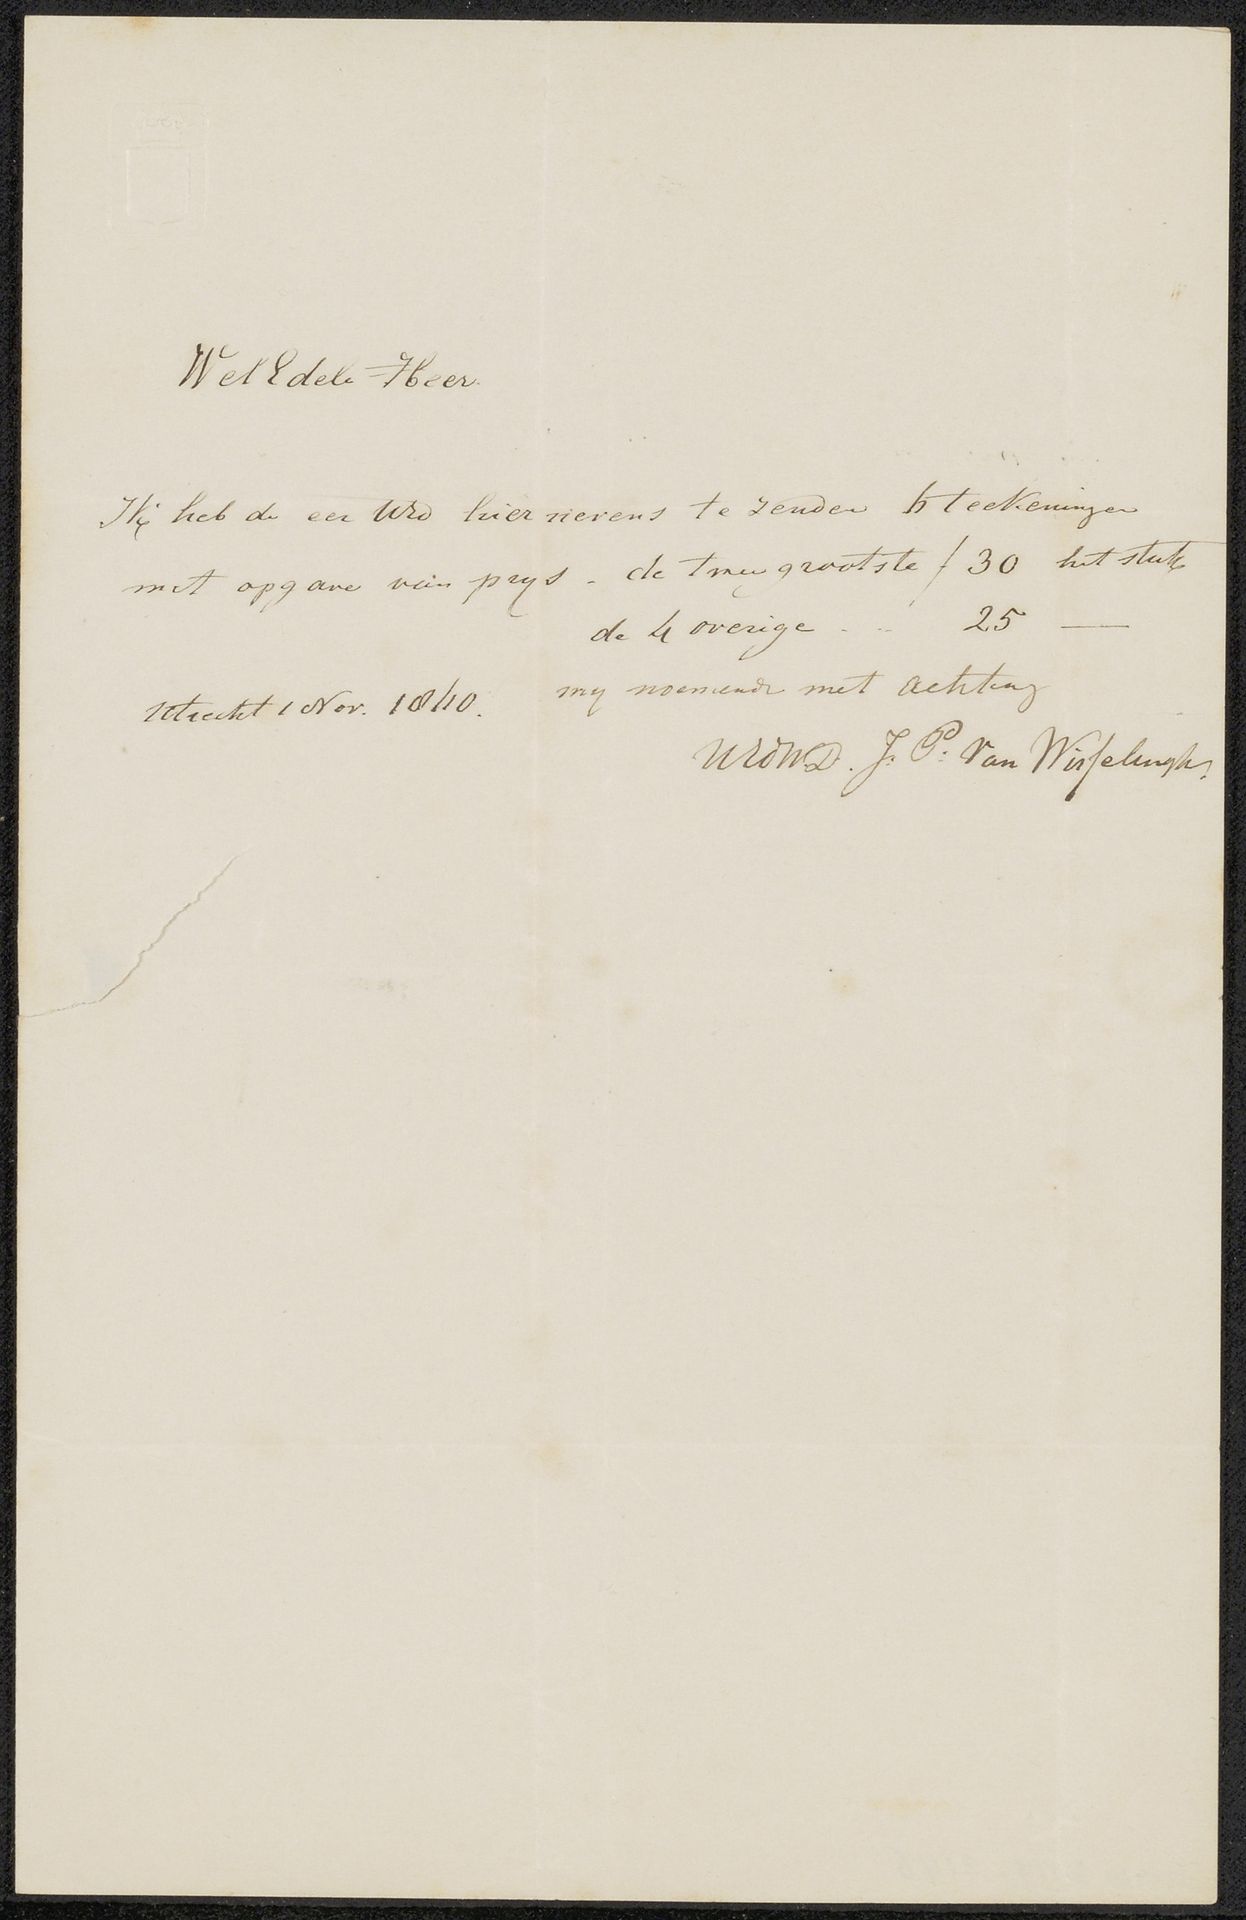 WelEdele Heer.
Ik heb de eer UEd hiernevens te zenden 6 teekeningen
met opgave van prijs - de twee grootste f 30 het stuk
de 4 overige - - 25 —
Utrecht 1 Nov. 1840. mij noemende met achting
UEdWD. J. P. Van Wisselingh.